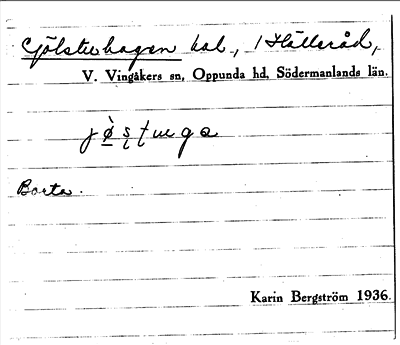 Gölstuhagen bol., / Hälleråd,
V. Vingåkers sn, Oppunda hd, Södermanlands län.
Borta.
Karin Bergström 1936.